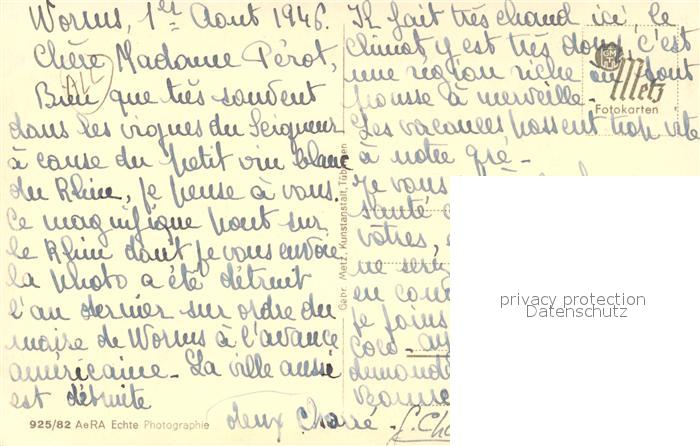 Worms, 1er Aout 1946.
Chère Madame Pérot,
ALL
Bien que très souvent
dans les vignes du Seigneur
à cause du petit vin blanc
du Rhin, je pense à vous.
Ce magnifique pont sur
le Rhin dont je vous envoie
la photo a été détruit
l'an dernier sur ordre du
maire de Worms à l'avance
américaine - La ville aussi
est détruite
925/82 AeRA Echte Photographie
Gebr. Metz, Kunstanstalt, Tübingen
Il fait très chaud ici, le
climat y est très doux, c'est
une région riche où tout
pousse à merveille.
GMT
Metz
Fotokarten
Les vacances passent trop vite
à notre gré -
Je vous
santé
vôtres,
ne
en
je joins
coco -
deux
privacy protection
Datenschutz